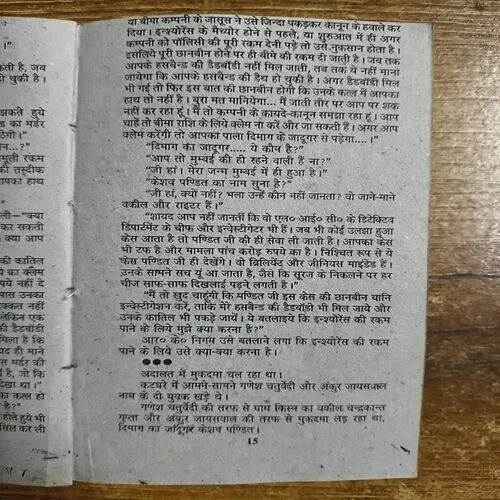 ती है, जब
हो चुकी है।
झकते हुये
ड का मर्डर
ठेगी।"
नन...?"
मूली रकम
की तस्दीक
पका हाथ
ली—"क्या
कर सकती
क्या आप
की कातिल
ये का क्लेम
पये नहीं दे
पास उनका
क्कत नहीं
लेकिन एक
की डैडबॉडी
मिला है कि
द ही माने
स मर्डर की
है, जो कि
देखा था।"
का कत्ल हो
है?"
होते हुये भी
सिल कर ली
या बीमा कम्पनी के जासूस ने उसे जिन्दा पकड़कर कानून के हवाले कर
दिया। इन्श्योरेंस के मैच्योर होने से पहले, या शुरुआत में ही अगर
कम्पनी को पॉलिसी की पूरी रकम देनी पड़े तो उसे नुकसान होता है।
इसलिये पूरी छानबीन होने पर ही बीमे की रकम दी जाती है। जब तक
आपके हसबैन्ड की डैडबॉडी नहीं मिल जाती, तब तक ये नहीं माना
जायेगा कि आपके हसबैन्ड की डैथ हो चुकी है। अगर डैडबॉडी मिल
भी गई तो फिर इस बात की छानबीन होगी कि उनके कत्ल में आपका
हाथ तो नहीं है। बुरा मत मानियेगा... मैं जाती तौर पर आप पर शक
नहीं कर रहा हूं। मैं तो कम्पनी के कायदे-कानून समझा रहा हूं। आप
चाहें तो बीमा राशि के लिये क्लेम ना करें और जा सकती हैं। अगर आप
क्लेम करेंगी तो आपका पाला दिमाग के जादूगर से पड़ेगा....।"
"दिमाग का जादूगर..... ये कौन है?"
"आप तो मुम्बई की ही रहने वाली हैं ना?"
"जी हां। मेरा जन्म मुम्बई में ही हुआ है।"
"केशव पण्डित का नाम सुना है?"
"जी हां, क्यों नहीं? भला उन्हें कौन नहीं जानता? वो जाने-माने
वकील और राइटर हैं।"
"शायद आप नहीं जानतीं कि वो एल० आई० सी० के डिटेक्टिव
डिपार्टमेंट के चीफ और इन्वेस्टीगेटर भी हैं। जब भी कोई उलझा हुआ
केस आता है तो पण्डित जी की ही सेवा ली जाती है। आपका केस
भी टफ है और मामला पांच करोड़ रुपये का है। निश्चित रूप से ये
केस पण्डित जी ही देखेंगे। वो ब्रिलियेंट और जीनियस माइडेड हैं।
उनके सामने सच यूं आ जाता है, जैसे कि सूरज के निकलने पर हर
चीज साफ-साफ दिखलाई पड़ने लगती है।"
"मैं तो खुद चाहूंगी कि पण्डित जी इस केस की छानबीन यानि
इन्वेस्टीगेशन करें, ताकि मेरे हसबैन्ड की डैडबॉडी भी मिल जाये और
उनके कातिल भी पकड़े जायें। ये बतलाइये कि इन्श्योरेंस की रकम
पाने के लिये मुझे क्या करना है?"
आर० के० निगम उसे बतलाने लगा कि इन्श्योरेंस की रकम
पाने के लिये उसे क्या-क्या करना है।
●●●
अदालत में मुकदमा चल रहा था।
कटघरे में आमने-सामने गणेश चतुर्वेदी और अंकुर जायसवाल
नाम के दो युवक खड़े थे।
गणेश चतुर्वेदी की तरफ से घाघ किस्म का वकील चन्द्रकान्त
गुप्ता और अंकुर जायसवाल की तरफ से मुकदमा लड़ रहा था,
दिमाग का जादूगर केशव पण्डित।
15